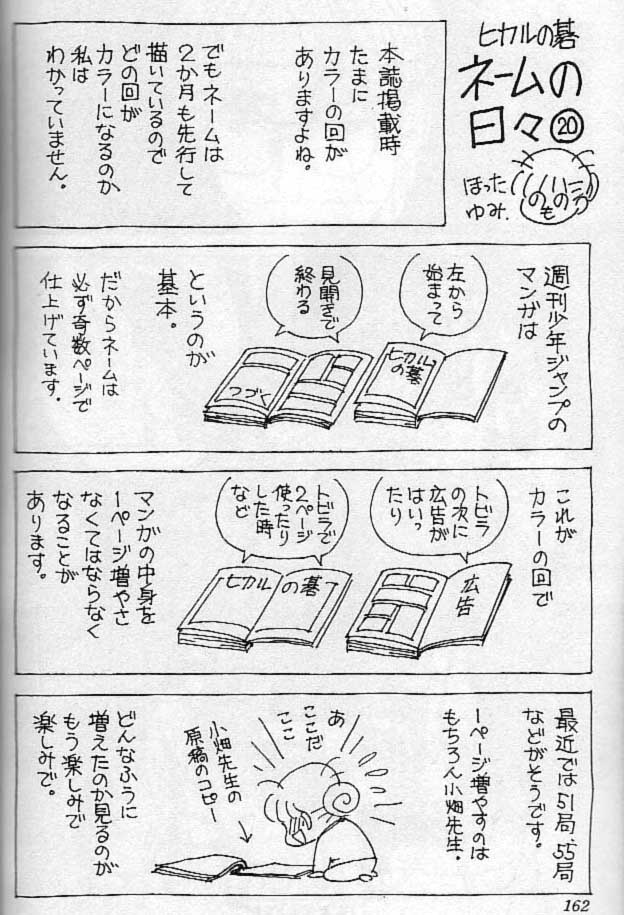 ヒカルの碁
ネームの
日々⑳
ほった
ゆみ.
本誌掲載時
たまに
カラーの回が
ありますよね。
でもネームは
2か月も先行して
描いているので
どの回が
カラーになるのか
私は
わかっていません。
週刊少年ジャンプの
マンガは
左から
始まって
見開きで
終わる
ヒカル
の碁
つづく
というのが
基本。
だからネームは
必ず奇数ページで
仕上げています。
これが
カラーの回で
トビラ
の次に
広告が
はいっ
たり
トビラで
2ページ
使ったり
した時
など
広告
ヒカル の碁
マンガの中身を
1ページ増やさ
なくてはならなく
なることが
あります。
最近では51局、55局
などがそうです。
1ページ増やすのは
もちろん小畑先生.
あ
ここだ
ここ
小畑先生の
原稿のコピー
どんなふうに
増えたのか見るのが
もう楽しみで
楽しみで。
162